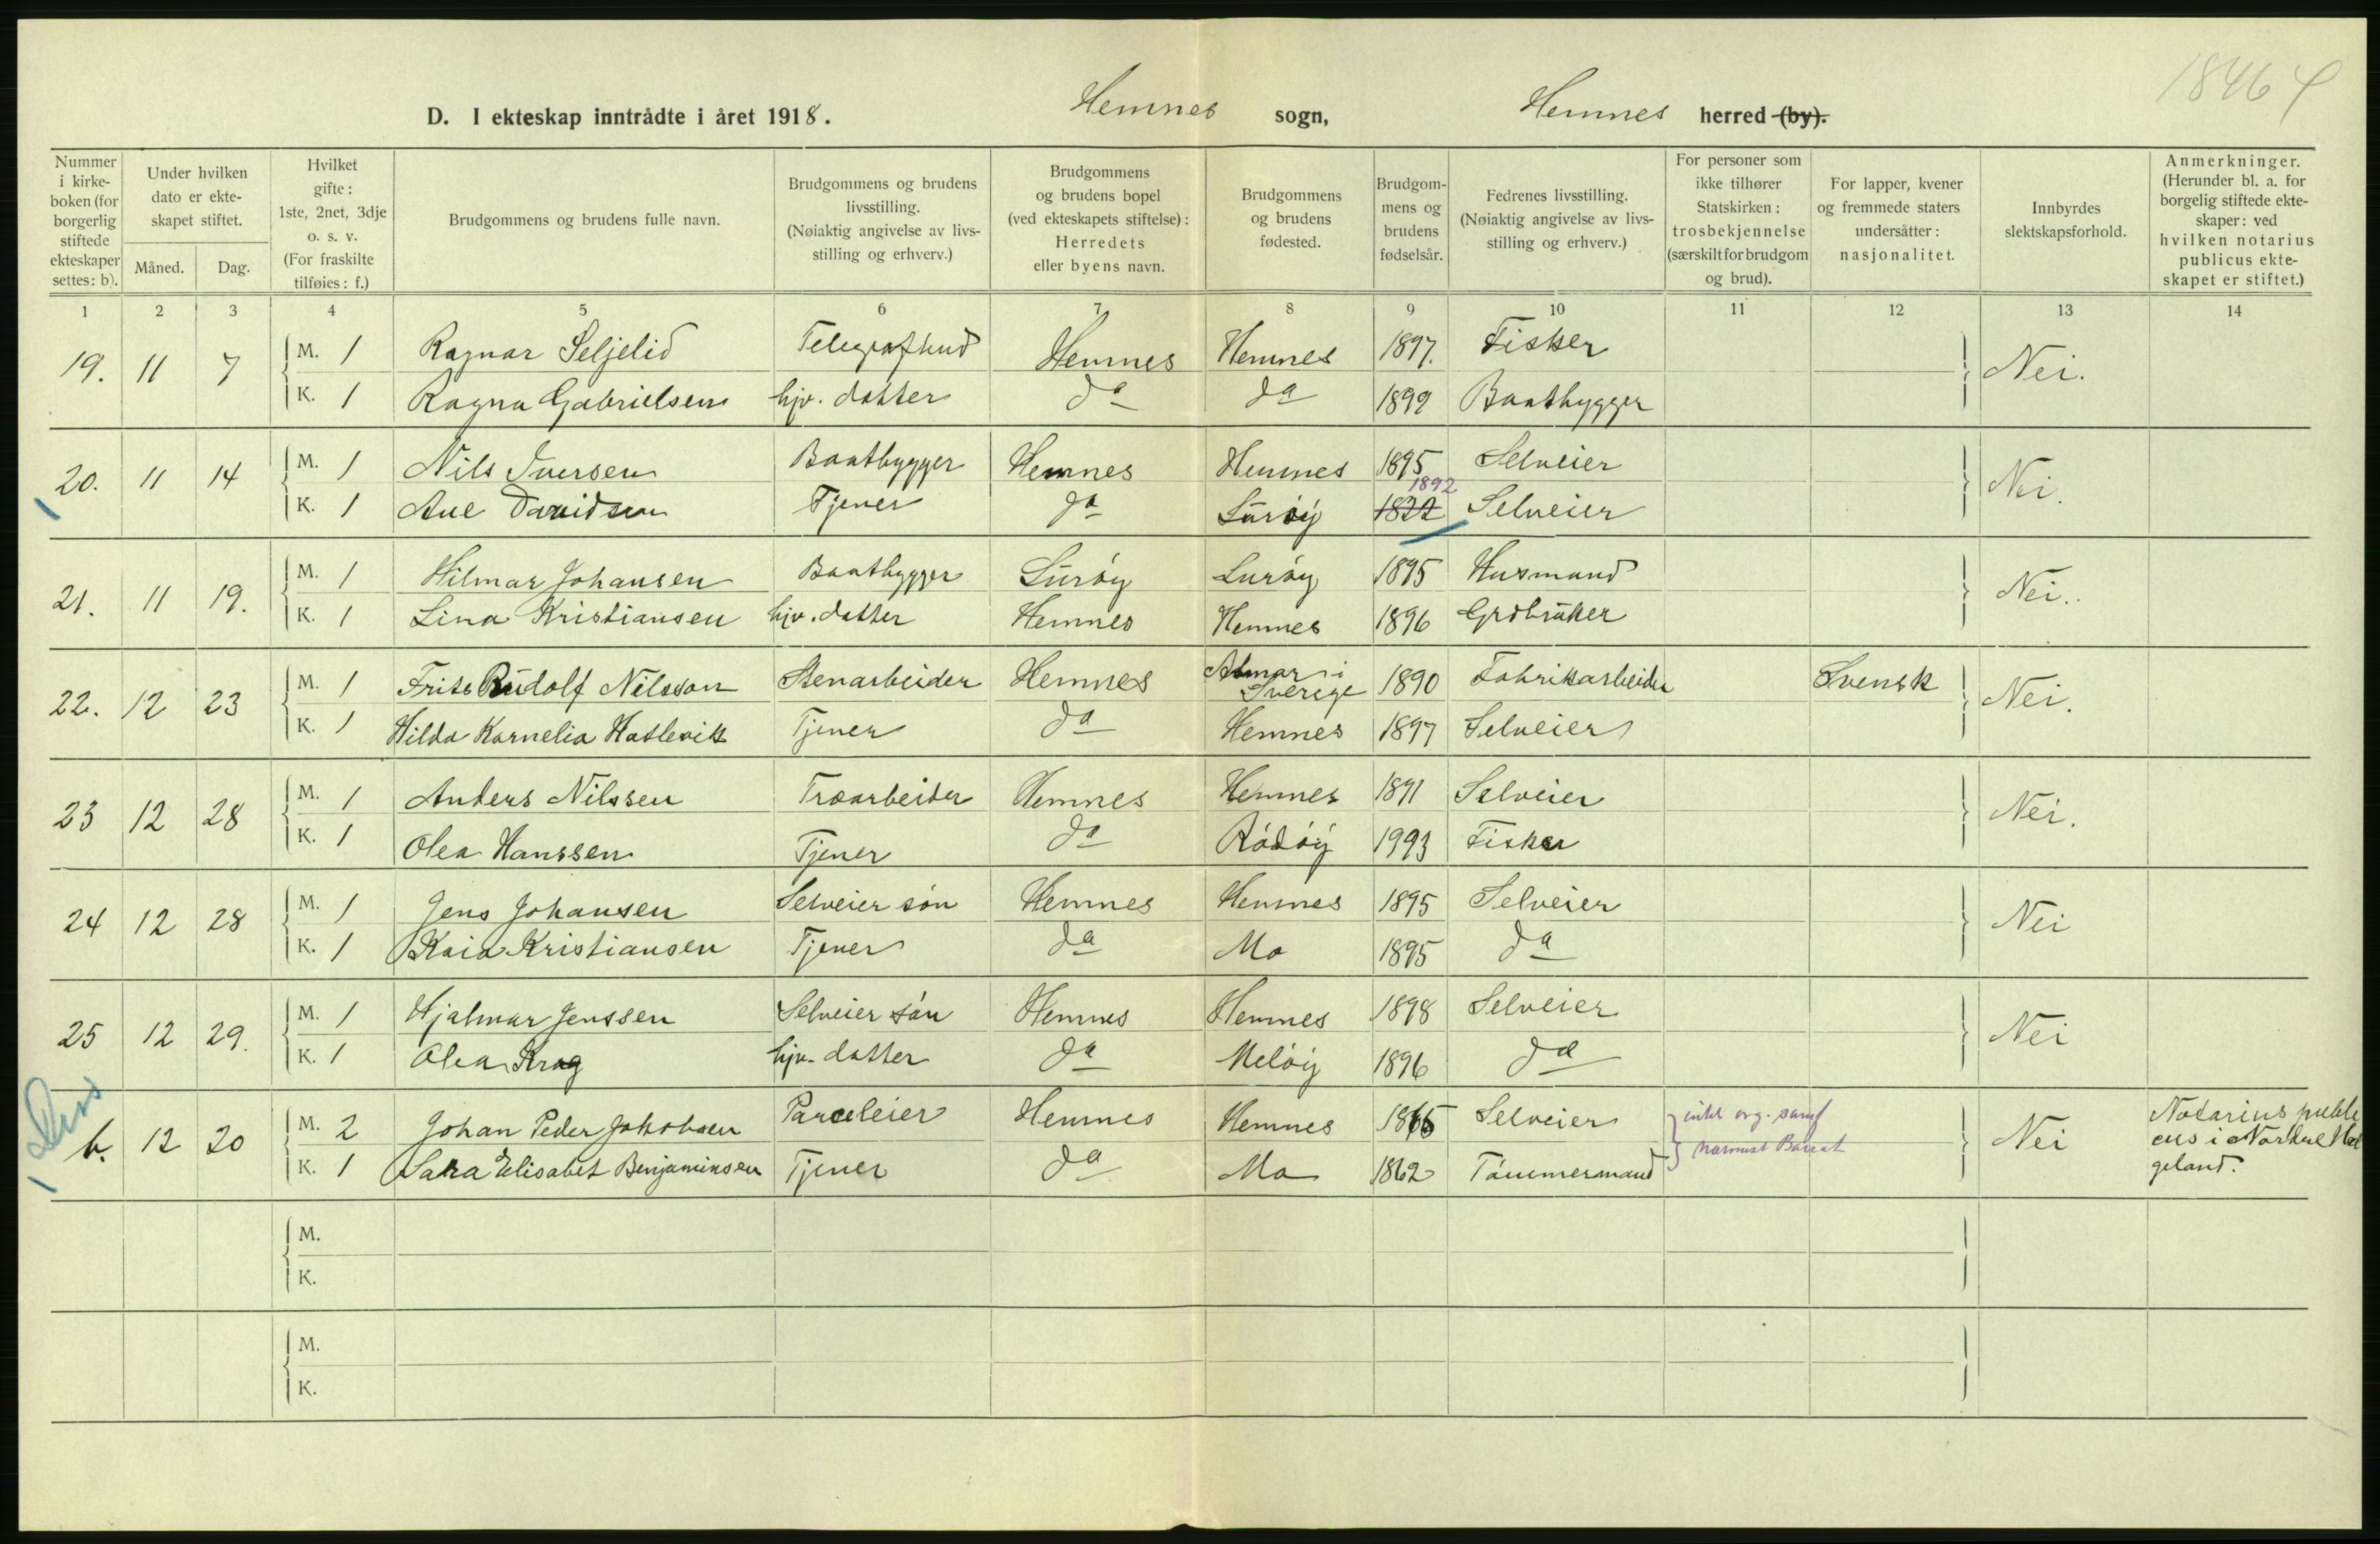 18464
D. I ekteskap inntrådte i året 1918. Hemnes sogn, Hemnes herred (by).
Nummer i kirkeboken (for borgerlig stiftede ekteskaper settes: b).
Under hvilken dato er ekteskapet stiftet.
Måned. Dag.
Hvilket gifte: 1ste, 2net, 3dje o. s. v. (For fraskilte tilføies: f.)
Brudgommens og brudens fulle navn.
Brudgommens og brudens livsstilling. (Nøiaktig angivelse av livsstilling og erhverv.)
Brudgommens og brudens bopel (ved ekteskapets stiftelse): Herredets eller byens navn.
Brudgommens og brudens fødested.
Brudgommens og brudens fødselsår.
Fedrenes livsstilling. (Nøiaktig angivelse av livsstilling og erhverv.)
For personer som ikke tilhører Statskirken: trosbekjennelse (særskilt for brudgom og brud).
For lapper, kvener og fremmede staters undersåtter: nasjonalitet.
Innbyrdes slektskapsforhold.
Anmerkninger. (Herunder bl. a. for borgelig stiftede ekteskaper: ved hvilken notarius publicus ekteskapet er stiftet.)
1 2 3 4 5 6 7 8 9 10 11 12 13 14
19. 11 7 M. 1 Ragnar Seljelid Telegrafbud Hemnes Hemnes 1897. Fisker Nei.
K. 1 Ragna Gabrielsen hjv. datter da da 1899 Baatbygger
20. 11 14 M. 1 Nils Iversen Baatbygger Hemnes Hemnes 1895 Selveier Nei.
1892
K. 1 Ane Davidsen Tjener da Lurøy 1822 Selveier
21. 11 19. M. 1 Hilmar Johansen Baatbygger Lurøy Lurøy 1895 Husmand Nei.
K. 1 Lina Kristiansen hjv. datter Hemnes Hemnes 1896 Grdbruker
22. 12 23 M. 1 Frits Rudolf Nilsson Stenarbeider Hemnes i Sverige 1890 Fabrikarbeider Svensk Nei.
K. 1 Hilda Kornelia Hatlevik Tjener da Hemnes 1897 Selveier
23 12 28 M. 1 Anders Nilssen Træarbeider Hemnes Hemnes 1891 Selveier Nei.
K. 1 Olea Hanssen Tjener da Rødøy 1993 Fisker
24 12 28 M. 1 Jens Johansen Selveier søn Hemnes Hemnes 1895 Selveier Nei
K. 1 Kaia Kristiansen Tjener da Mo 1895 da
25 12 29. M. 1 Hjalmar Jenssen Selveier søn Hemnes Hemnes 1898 Selveier Nei
K. 1 Olea Krog hjv. datter da Meløy 1896 da
b. 12 20 M. 2 Johan Peder Jakobsen Parceleier Hemnes Hemnes 1865 Selveier Nei Notarius publicus i Nordre Helgeland.
K. 1 Sara Elisabet Benjaminsen Tjener da Mo 1862 Tømmermand
M.
K.
M.
K.